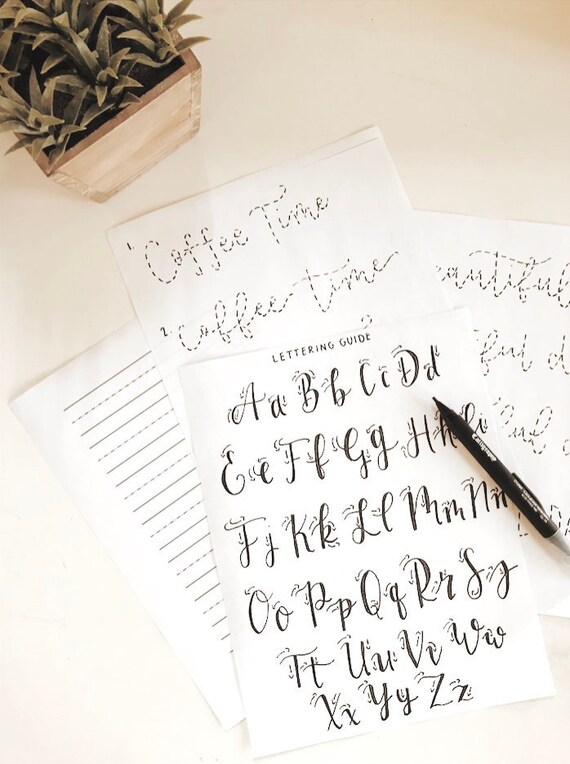 1. Coffee Time
2. coffee time
eautiful
LETTERING GUIDE
Aa Bb Cc Dd
Ee Ff Gg Hh Ii
Jj Kk Ll Mm Nn
Oo Pp Qq Rr Ss
Tt Uu Vv Ww
Xx Yy Zz